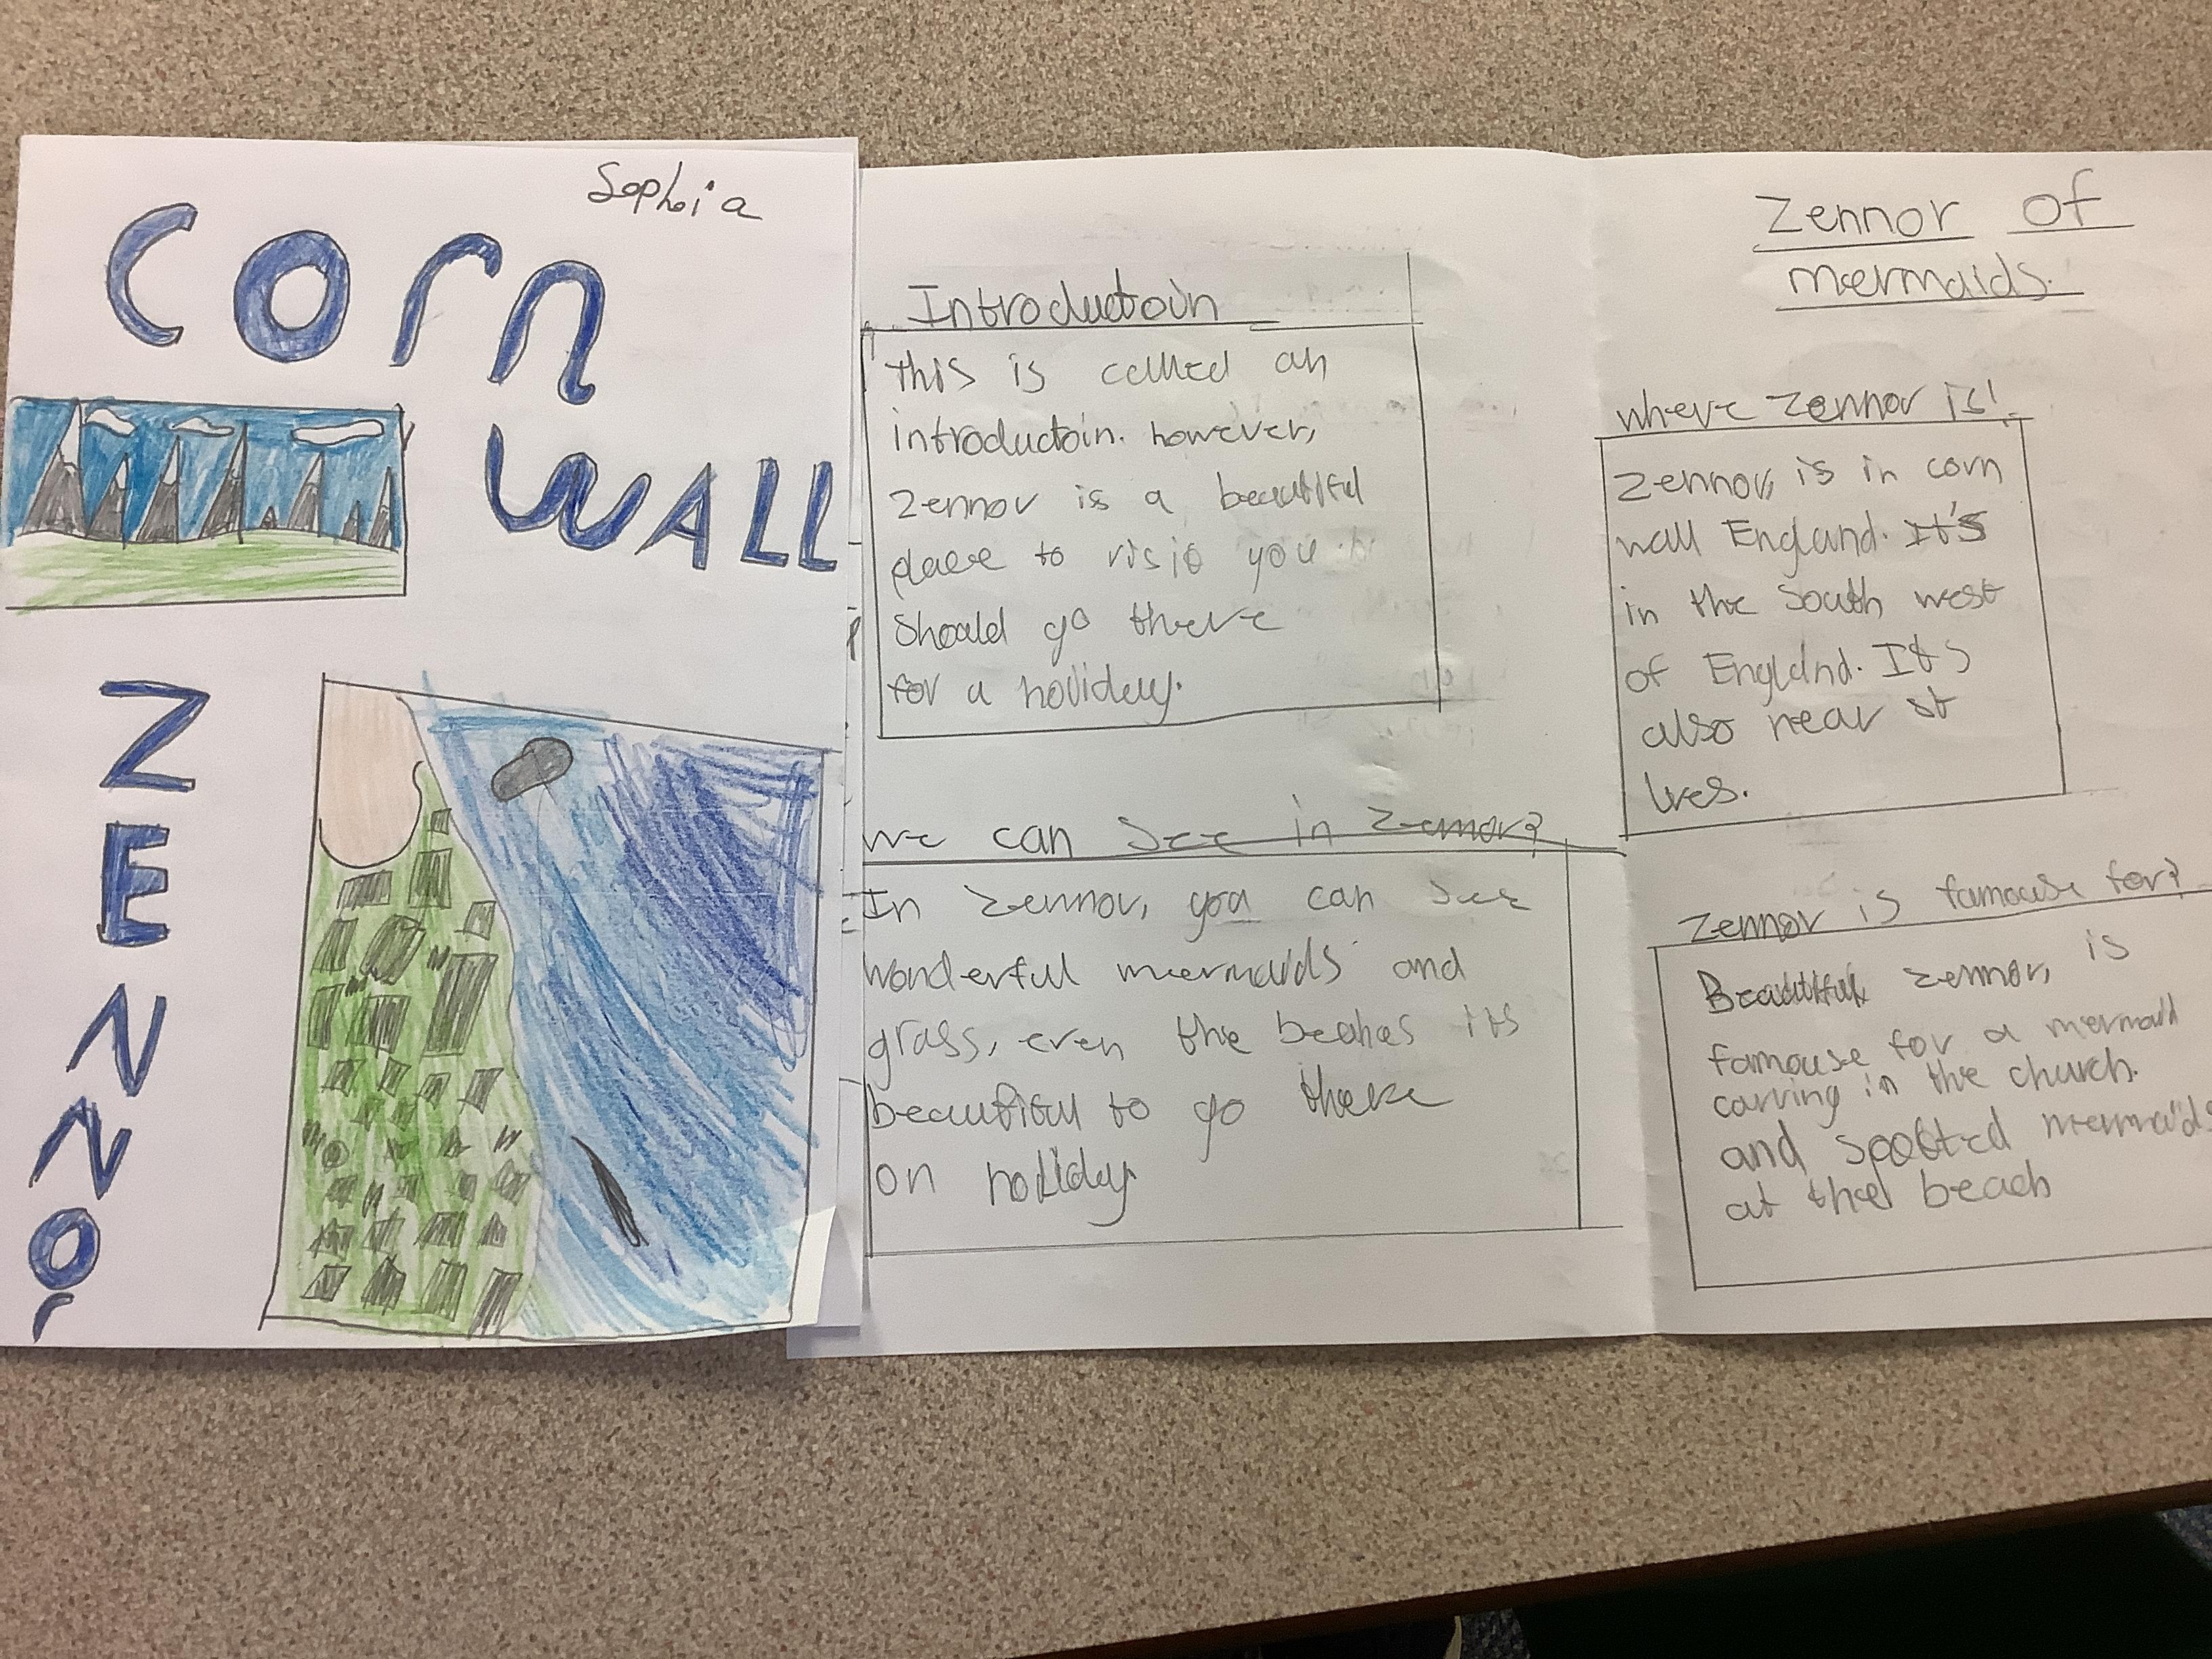 Sophia
Corn
WALL
ZENNOr
Introductoin
This is called an
introductoin. however,
Zennor is a beautiful
place to visit you
should go there
for a holiday.
we can see in Zennor?
In Zennor, you can see
wonderful mermaids and
grass, even the beahes its
beautiful to go there
on holiday.
Zennor of
mermaids.
where Zennor is!
Zennor, is in corn
wall England. It's
in the South west
of England. It's
also near st
Ives.
Zennor is famouse for?
Beautiful Zennor, is
famouse for a mermaid
carving in the church.
and spotted mermaids
at the beach